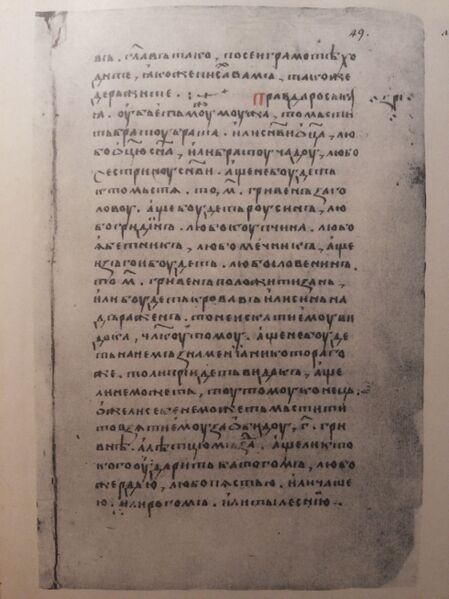 49.
въ. гл҃авъ тако, по сеи грамотѣ хо
дите, ꙗкоже писа вамъ, такоже
держите. :~ Правда роськ
а. оубьеть моужь моужа, то мьсти
ть братоу брата. или сн҃ви ѿц҃а, лю
бо ѿц҃ю сн҃а, или братоучадоу, любо
сестриноу сн҃ви. аще небоудеть
кто мьстѧ. то, м҃. гривенъ заго
ловоу. аще боудеть роусинъ, лю
бо гридинъ. любо коупчина. любо
ꙗбетникъ, любо мечникъ, аще
изъгои боудеть. любо словенинъ.
то м҃. гривенъ положити зань,
или боудеть кровавъ или синь на
дъраженъ. то неискати емоу ви
дока, чл҃коу томоу. аще небоуде
ть на немъ знаменіа никотораго
же. толи приидеть видокъ, аще
ли неможеть, тоу томоу конець.
оже ли себе неможеть мьстити
то взѧти емоу за обидоу, г҃. гри
внѣ. а лѣтцю мъзда. аще ли кто
кого оударить батогомъ, любо
жердью, любо пѧстью. или чаше
ю. или рогомъ. или тылеснию.